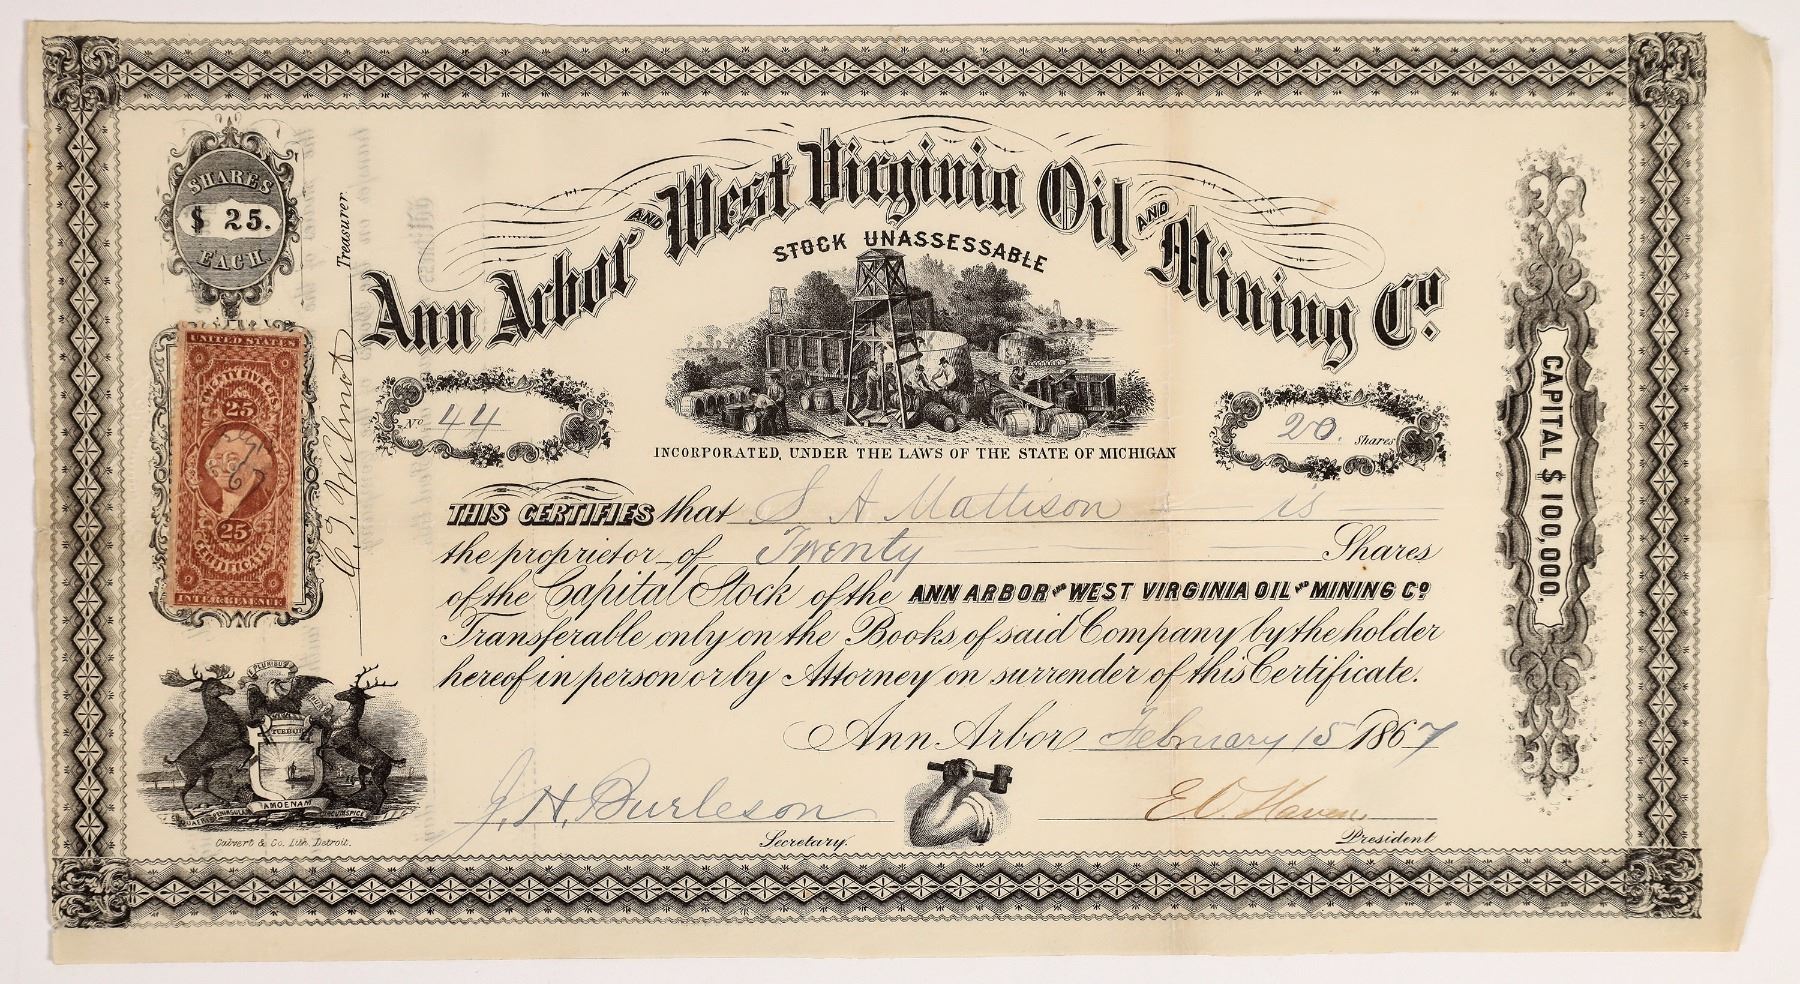 SHARES
$ 25.
EACH.
Ann Arbor AND West Virginia Oil AND Mining Co.
STOCK UNASSESSABLE
No 44
20. Shares
INCORPORATED, UNDER THE LAWS OF THE STATE OF MICHIGAN
THIS CERTIFIES that S A Mattison is
the proprietor of Twenty Shares
of the Capital Stock of the ANN ARBOR AND WEST VIRGINIA OIL AND MINING Co
Transferable only on the Books of said Company by the holder
hereof in person or by Attorney on surrender of this Certificate.
Ann Arbor February 15 1867
J. H. Burleson
Secretary.
E O. Haven
President
Wilmot
Treasurer
UNITED STATES
TWENTY FIVE CTS.
25
67
25
CERTIFICATE
INTER. REVENUE
E PLURIBUS
TUEBOR
QUAERIS PENINSULAM AMOENAM CIRCUMSPICE
Calvert & Co. Lith. Detroit.
CAPITAL $ 100,000.